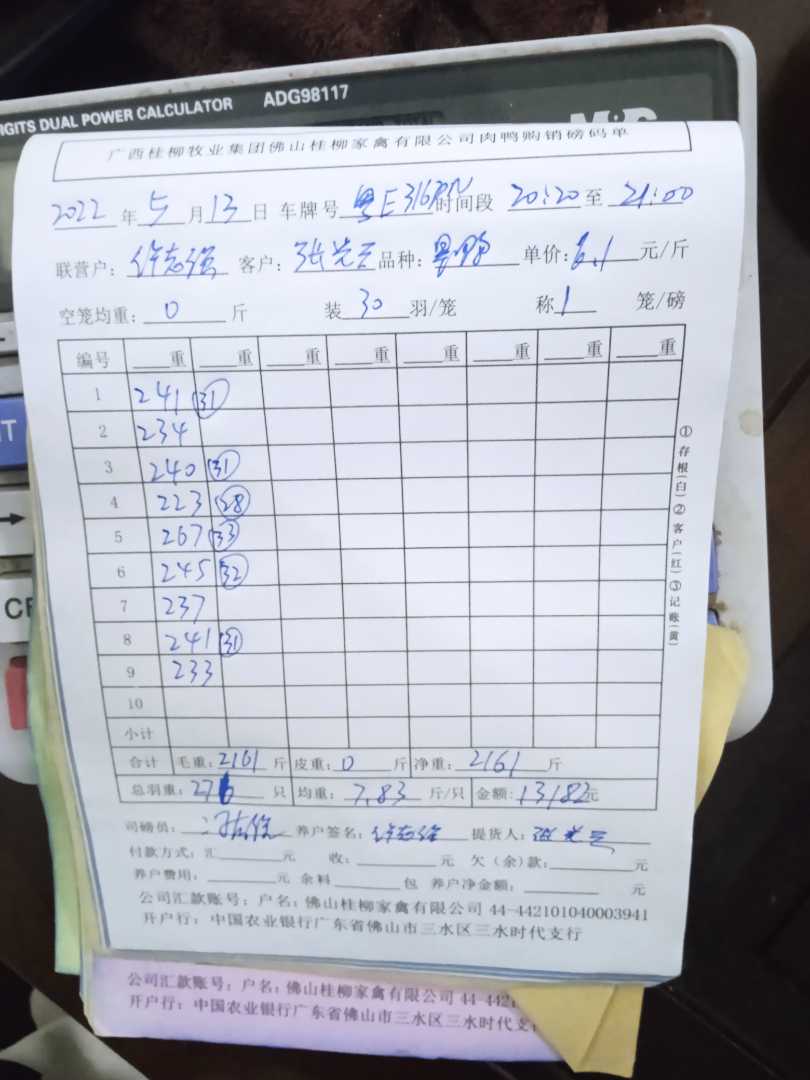 IGITS DUAL POWER CALCULATOR ADG98117
广西桂柳牧业集团佛山桂柳家禽有限公司肉鸭购销磅码单
2022年5月13日 车牌号 粤E316 时间段 20:20至21:00
联营户:许志强 客户:张光云 品种: 单价:6.1元/斤
空笼均重:0斤 装30羽/笼 称1笼/磅
编号 重 重 重 重 重 重 重 重
1 241 31
2 234
3 240 31
4 223 28
5 267 33
6 245 32
7 237
8 241 31
9 233
10
小计
合计 毛重:2161斤 皮重:0斤 净重:2161斤
总羽重:276只 均重:7.83斤/只 金额:13182元
司磅员: 养户签名:许志强 提货人:张光云
付款方式:汇 元 收: 元 欠(余)款: 元
养户费用: 元 余料 包 养户净金额: 元
公司汇款账号:户名:佛山桂柳家禽有限公司 44-442101040003941
开户行:中国农业银行广东省佛山市三水区三水时代支行
①存根(白)②客户(红)③记账(黄)
公司汇款账号:户名:佛山桂柳家禽有限公司 44-442
开户行:中国农业银行广东省佛山市三水区三水时代支